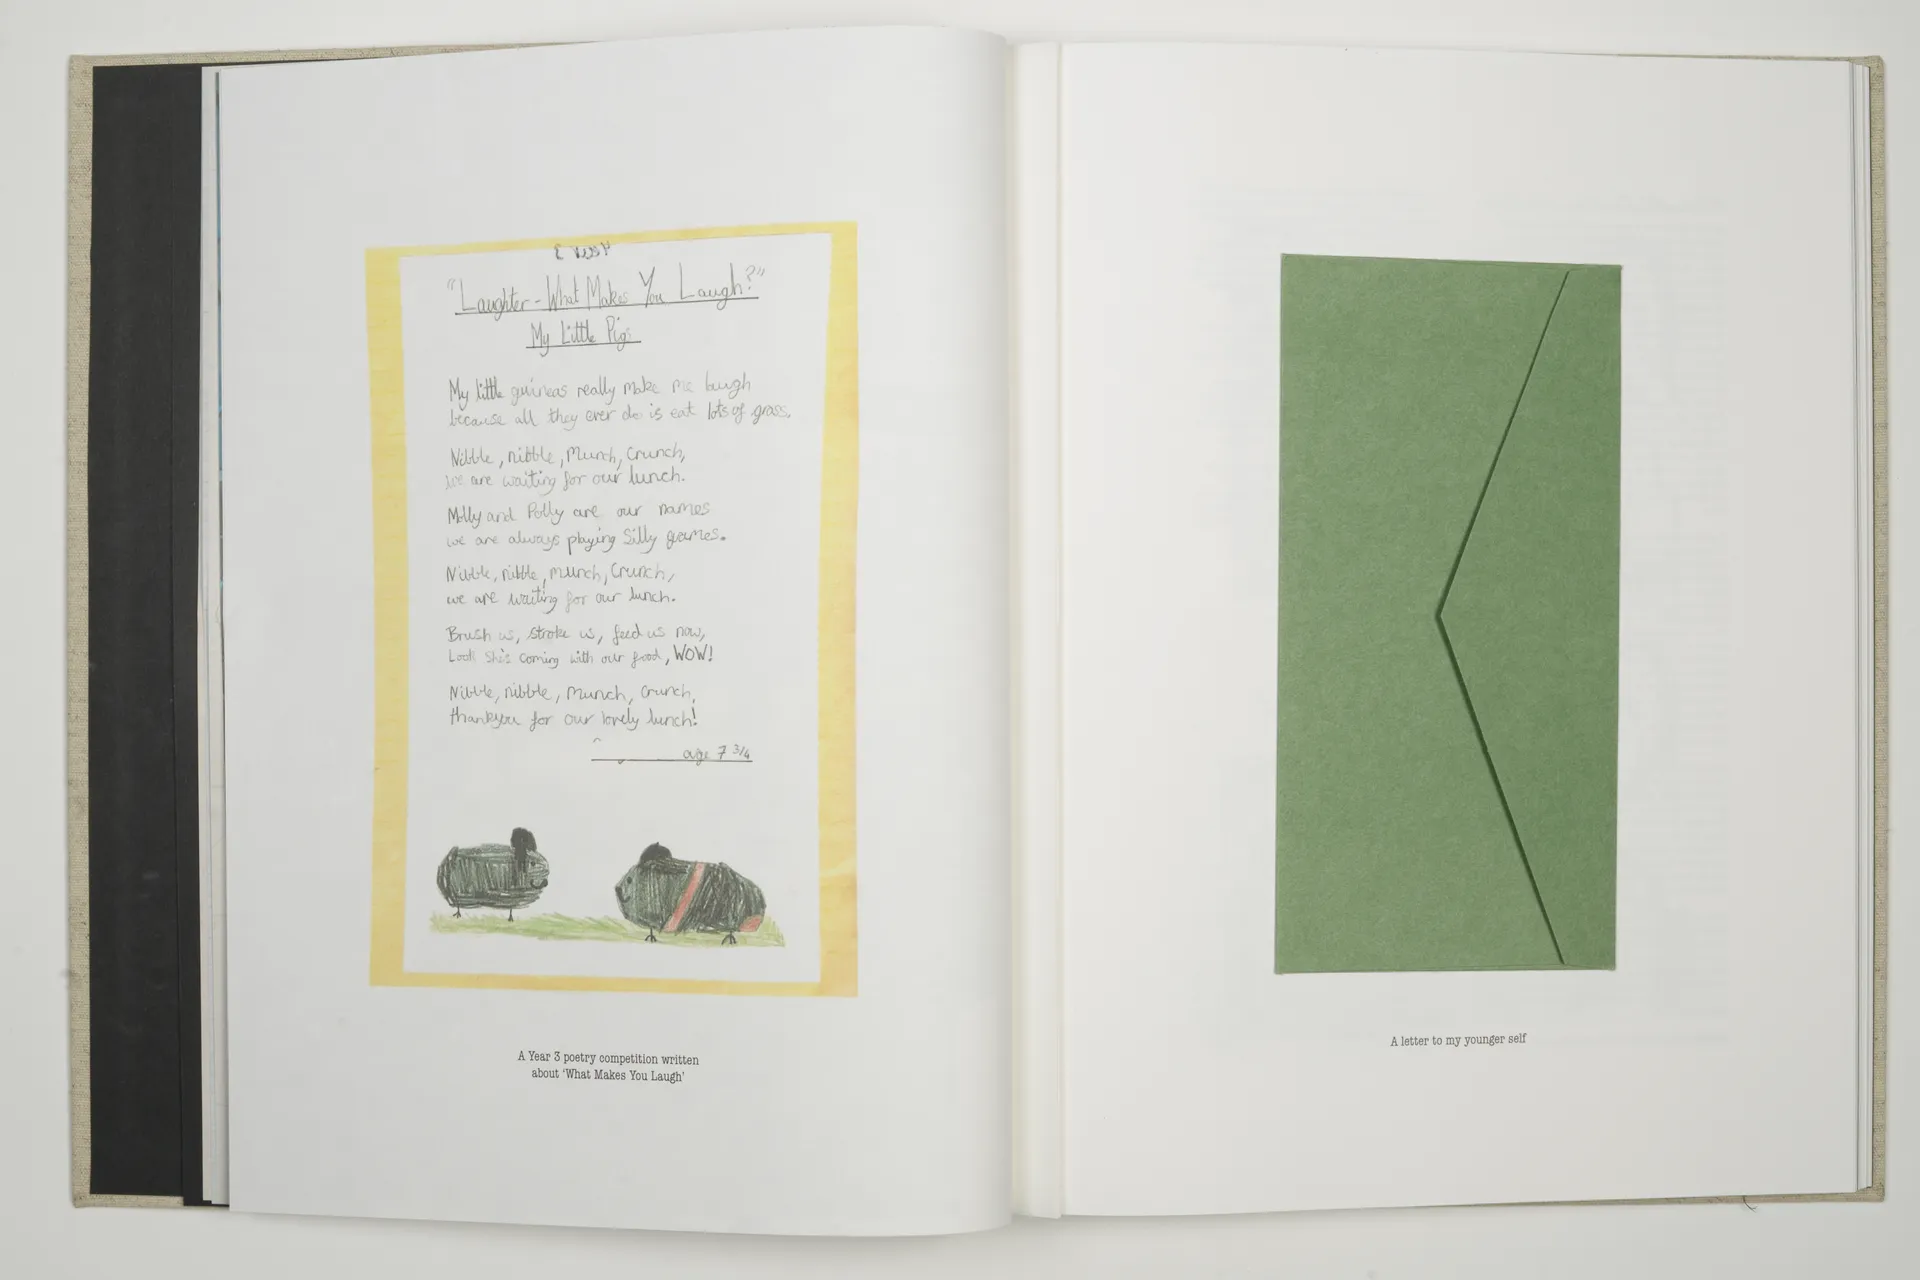 "Laughter - What Makes You Laugh?"
My Little Pigs
My little guineas really make me laugh
because all they ever do is eat lots of grass.
Nibble, nibble, Munch, Crunch,
we are waiting for our lunch.
Molly and Polly are our names
we are always playing Silly games.
Nibble, nibble, munch, Crunch,
we are waiting for our lunch.
Brush us, stroke us, feed us now,
Look she's coming with our food, WOW!
Nibble, nibble, Munch, Crunch,
thankyou for our lovely lunch!
age 7 3/4
A Year 3 poetry competition written
about ‘What Makes You Laugh’
A letter to my younger self